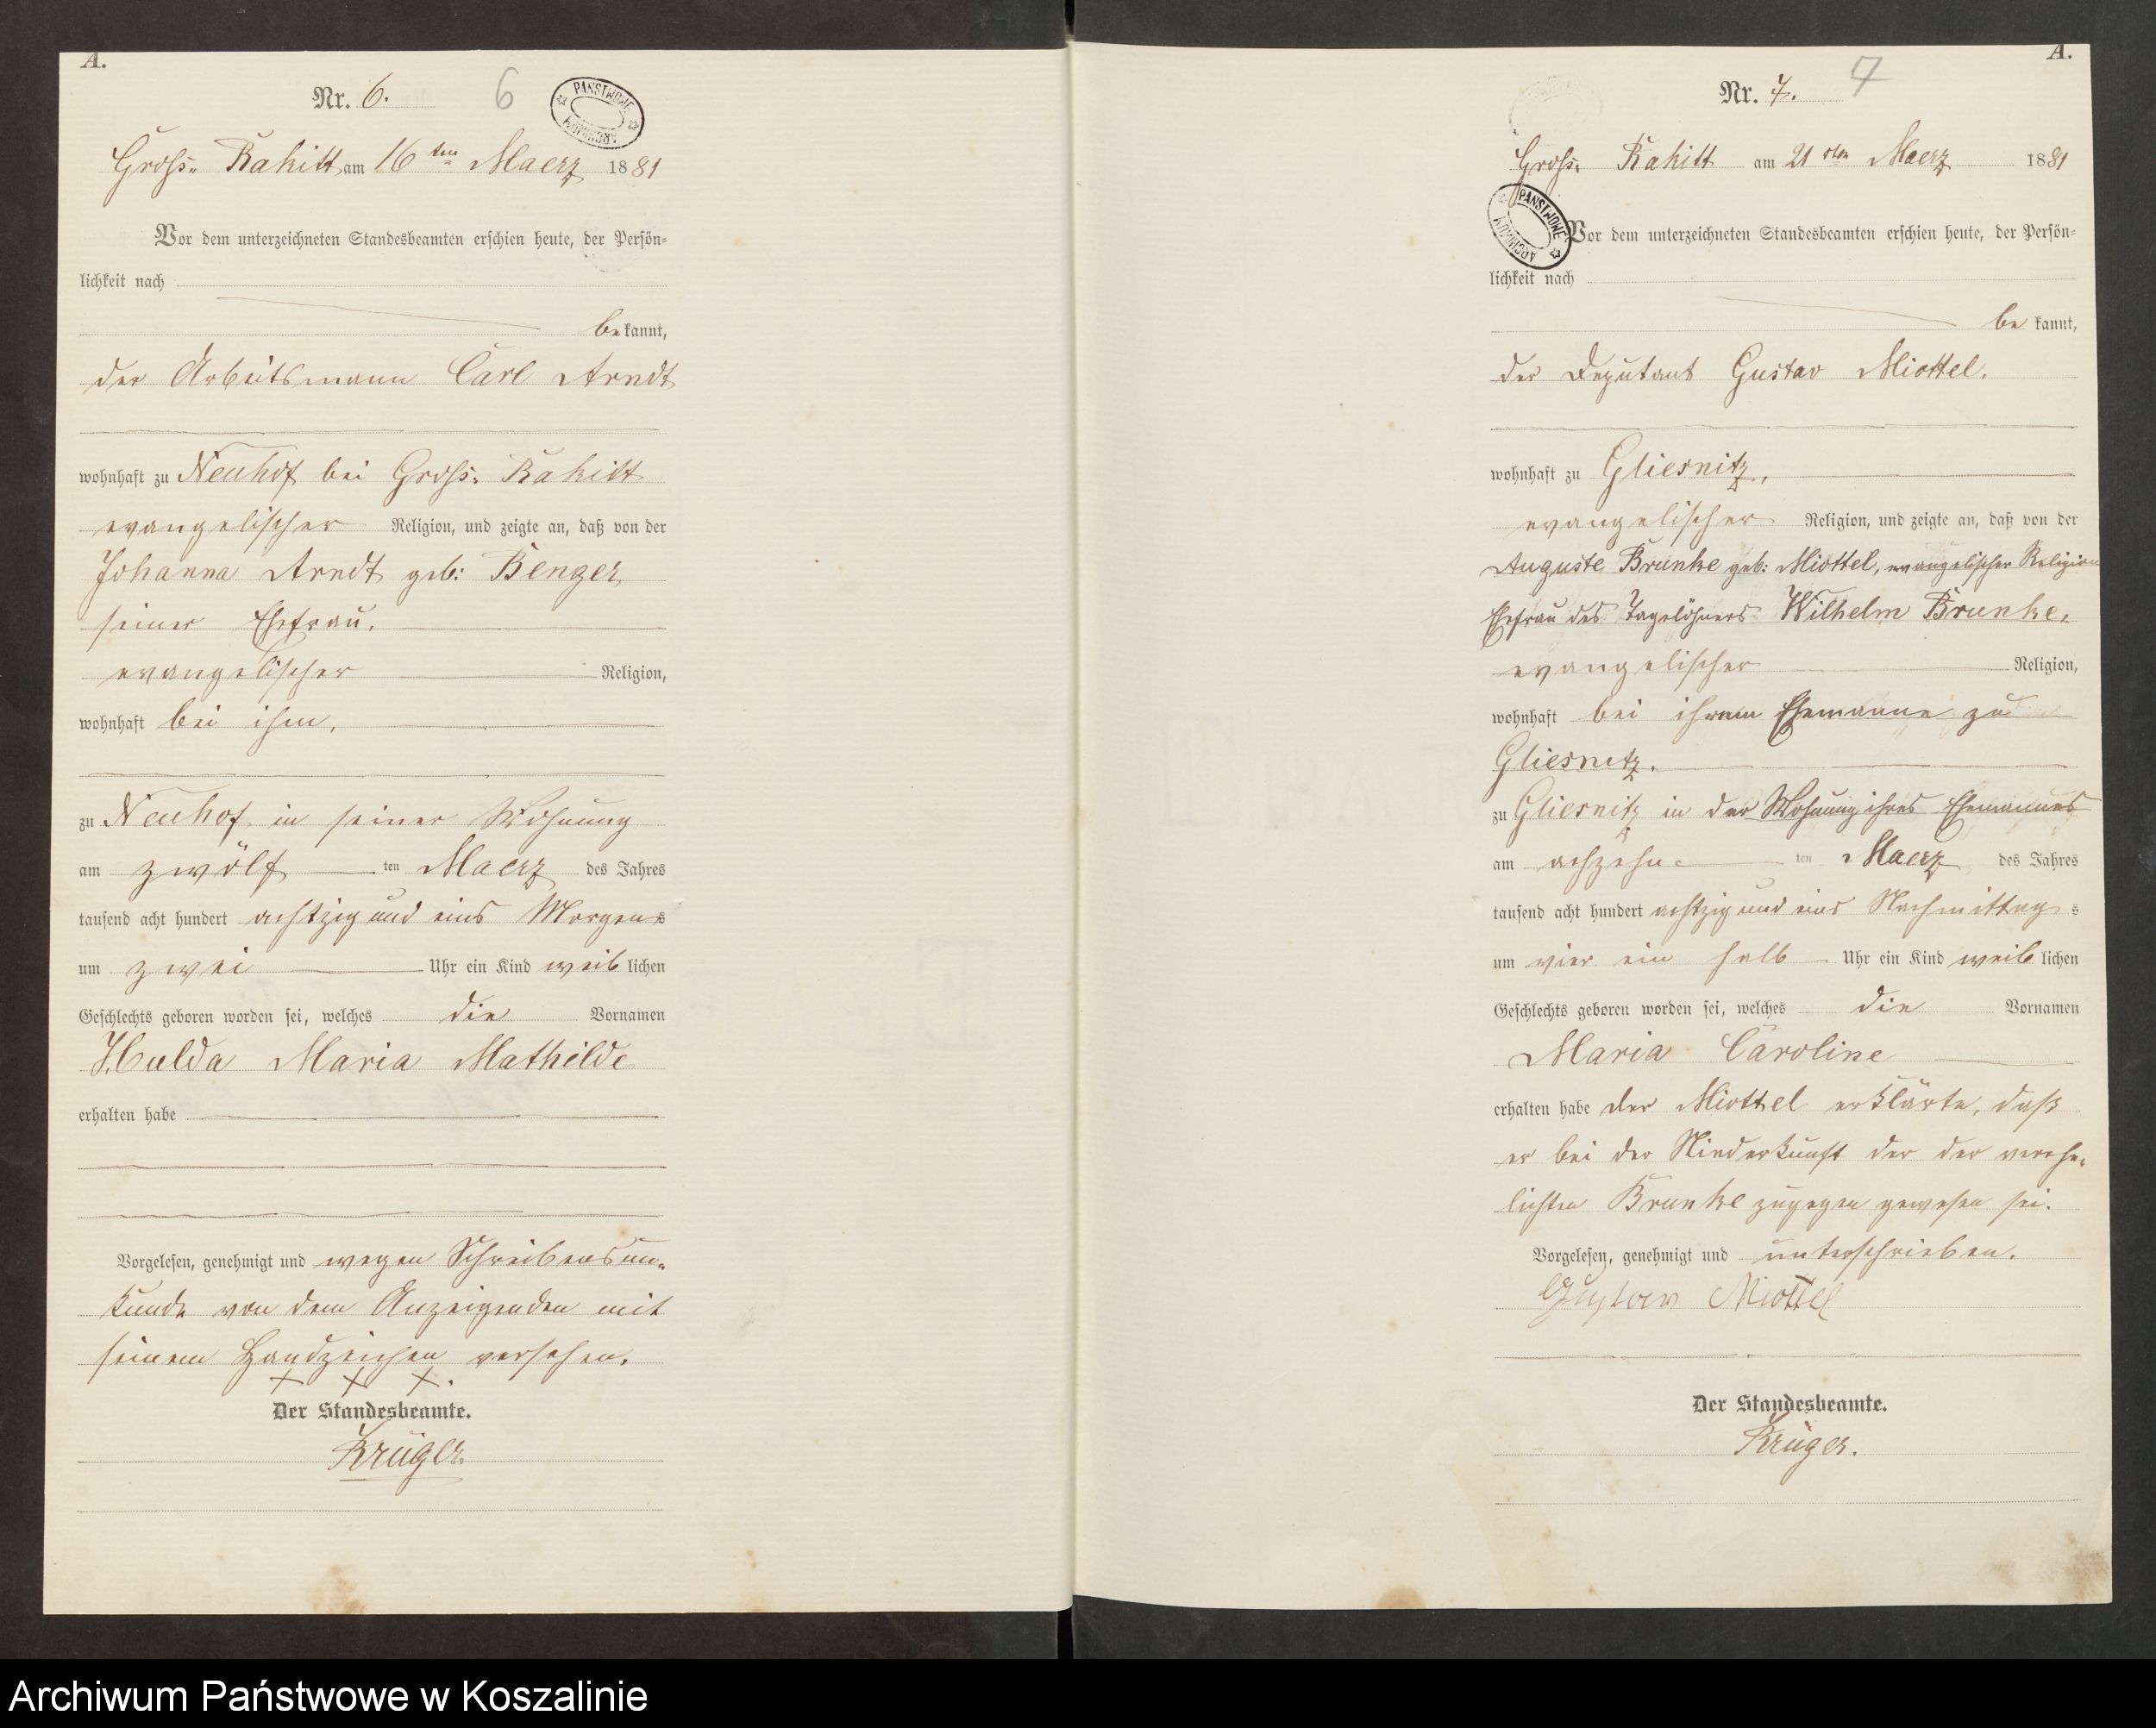 A.
Nr. 6. 6
PANSTWOWE ARCHIWUM
Gross- Rakitt am 16 ten Maerz 1881
Vor dem unterzeichneten Standesbeamten erschien heute, der Persön-
lichkeit nach
bekannt,
der Arbeitsmann Carl Arndt
wohnhaft zu Neuhof bei Gross- Rakitt
evangelischer Religion, und zeigte an, daß von der
Johanna Arndt geb: Benger
seiner Ehefrau.
evangelischer Religion,
wohnhaft bei ihm,
zu Neuhof in seiner Wohnung
am zwölf ten Maerz des Jahres
tausend acht hundert achtzig und eins Morgens
um zwei Uhr ein Kind weiblichen
Geschlechts geboren worden sei, welches die Vornamen
Hulda Maria Mathilde
erhalten habe
Vorgelesen, genehmigt und wegen Schreibensun-
kunde von dem Anzeigenden mit
seinem Handzeichen versehen.
X X X.
Der Standesbeamte.
Krüger.
A.
Nr. 7. 7
Gross- Rakitt am 21 sten Maerz 1881
PANSTWOWE ARCHIWUM
Vor dem unterzeichneten Standesbeamten erschien heute, der Persön-
lichkeit nach
bekannt,
der Deputant Gustav Miottel.
wohnhaft zu Gliesnitz,
evangelischer Religion, und zeigte an, daß von der
Auguste Brunke geb: Miottel, evangelischer Religion
Ehefrau des Tagelöhners Wilhelm Brunke,
evangelischer Religion,
wohnhaft bei ihrem Ehemanne zu
Gliesnitz.
zu Gliesnitz in der Wohnung ihres Ehemannes
am achzehn ten Maerz des Jahres
tausend acht hundert achtzig und eins Nachmittags
um vier ein halb Uhr ein Kind weiblichen
Geschlechts geboren worden sei, welches die Vornamen
Maria Caroline
erhalten habe der Miottel erklärte, daß
er bei der Niederkunft der der verehe-
lichten Brunke zugegen gewesen sei.
Vorgelesen, genehmigt und unterschrieben.
Gustav Miottel
Der Standesbeamte.
Krüger.
Archiwum Państwowe w Koszalinie